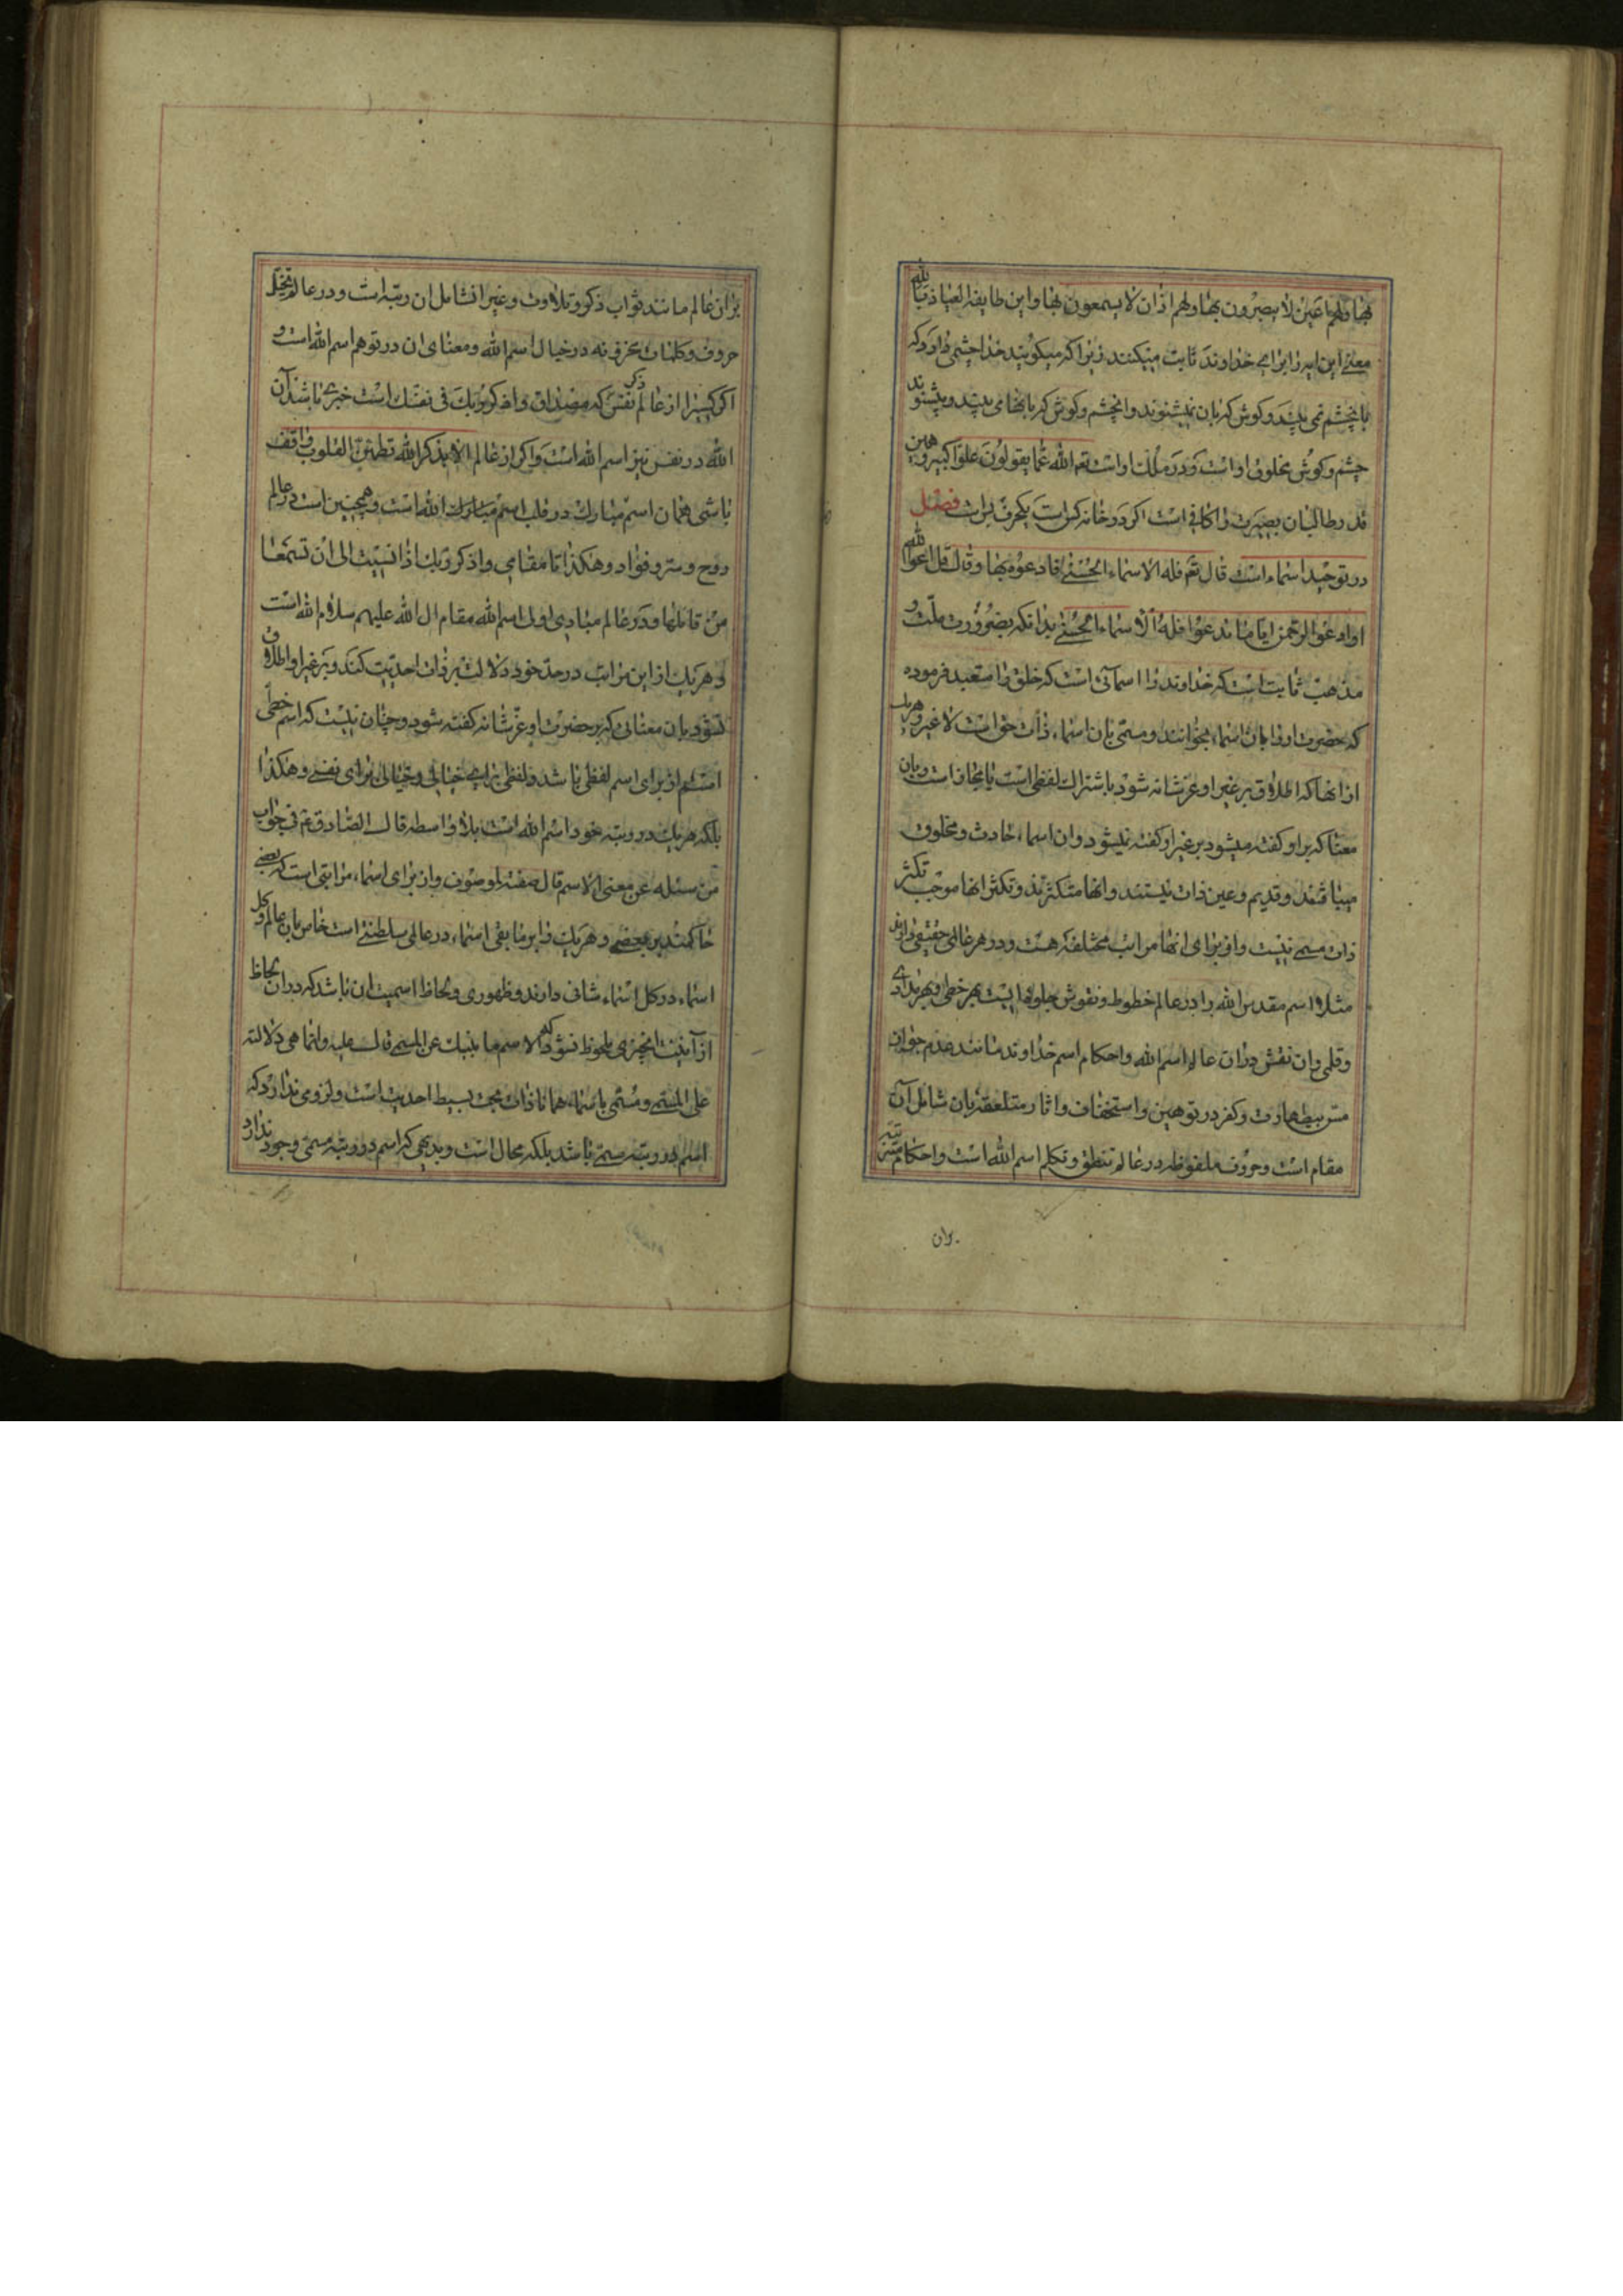 بها ولهم اعین لا یبصرون بها ولهم اذان لا یسمعون بها واین طایفه العیاذ بالله
معنی این ایه را برای خداوند ثابت میکنند زیرا که میکویند خدا چشمی دارد که
با نچشم نمی بیند وکوش که بان نمیشنوند وانچشم وکوش که بانها می بیند ومیشنوند
چشم وکوش مخلوق اواست ودر ملک اواست تعم الله عما یقولون علوا کبیرا وهمین
قدر طالبان بصیرت را کافی است اکر در خانه کس است یکحرف بس است فصل
در توحید اسماء است قال تعم فله الاسماء الحسنی فادعوه بها وقال قل ادعوا الله
او ادعوا الرحمن ایا ما تدعوا فله الاسماء الحسنی بدانکه بضرورت ملت و
مذهب ثابت است که خداوند را اسمائی است که خلق را مستعبد فرموده
که حضرت اورا بان اسماء بخوانند ومسمی بان اسماء ذات حق است لا غیر وهریک
ازانها که اطلاق بر غیر او عزشانه شود باشتراک لفظی است یا مجاز است وبان
معنا که بر او کفته میشود بر غیر او کفته نمیشود وان اسماء حادث ومخلوق
میباشند وقدیم وعین ذات نیستند وانها متکثرند وتکثر انها موجب تکثر
ذات مسمی نیست واز برای انها مراتب مختلفه هست ودر هر عالمی حقیقی دارند
مثلا اسم مقدس الله را در عالم خطوط ونقوش جلوه ایست بهر خطی وبهر مدادی
وقلمی وان نقش در ان عالم اسم الله واحکام اسم خداوند مانند عدم جواز
مس بیطهارت وکفر در توهین واستخفاف واثار متعلقه بان شامل آن
مقام است وحروف ملفوظه در عالم تنطق وتکلم اسم الله است واحکام مترتبه
بران
بران عالم مانند ثواب ذکر وتلاوت وغیرانشامل ان رتبه است ودر عالم تخیل
حروف وکلمات مخزونه در خیال اسم الله ومعنای ان در توهم اسم الله است و
اکر کسیرا از عالم ذکر نفس که مصداق واذکر ربک فی نفسک است خبری باشد آن
الله در نفس نیز اسم الله است واکر از عالم الا بذکر الله تطمئن القلوب واقف
باشی همان اسم مبارک در قلب اسم مبارک الله است وهمچنین است در عالم
روح وسر وفؤاد وهکذا تا مقامی واذکر ربک اذا نسیت الی ان تسمعها
من قائلها ودر عالم مبادی اول اسم الله مقام ال الله علیهم سلام الله است
وهریک از این مراتب در حد خود دلالت بر ذات احدیت کند وبر غیر او اطلاق
نشود بان معنائی که بر حضرت او عزشانه کفته شود وچنان نیست که اسم خطی
اسم از برای اسم لفظی باشد ولفظی برای خیالی وخیالی برای نفسی وهکذا
بلکه هریک در رتبه خود اسم الله است بلا واسطه قال الصادق عم فی جواب
من سئله عن معنی الاسم قال صفة لموصوف واز برای اسماء مراتبی است که بعضی
حاکمند بر بعضی وهریک را بر مابقی اسماء در عالمی سلطنتی است خاص بان عالم وکل
اسماء در کل اسماء شانی دارند وظهوری ولحاظ اسمیت ان باشد که در ان لحاظ
از آنیت انچیزی ملحوظ نشود که الاسم ما ینبئک عن المسمی قالت علیه وانما هی دلالته
علی المسمی ومسمی باسماء همانا ذات بحت بسیط احدیت است ولزومی ندارد که
اسم در رتبه مسمی باشد بلکه محال است وبدیهی که اسم در رتبه مسمی وجود ندارد